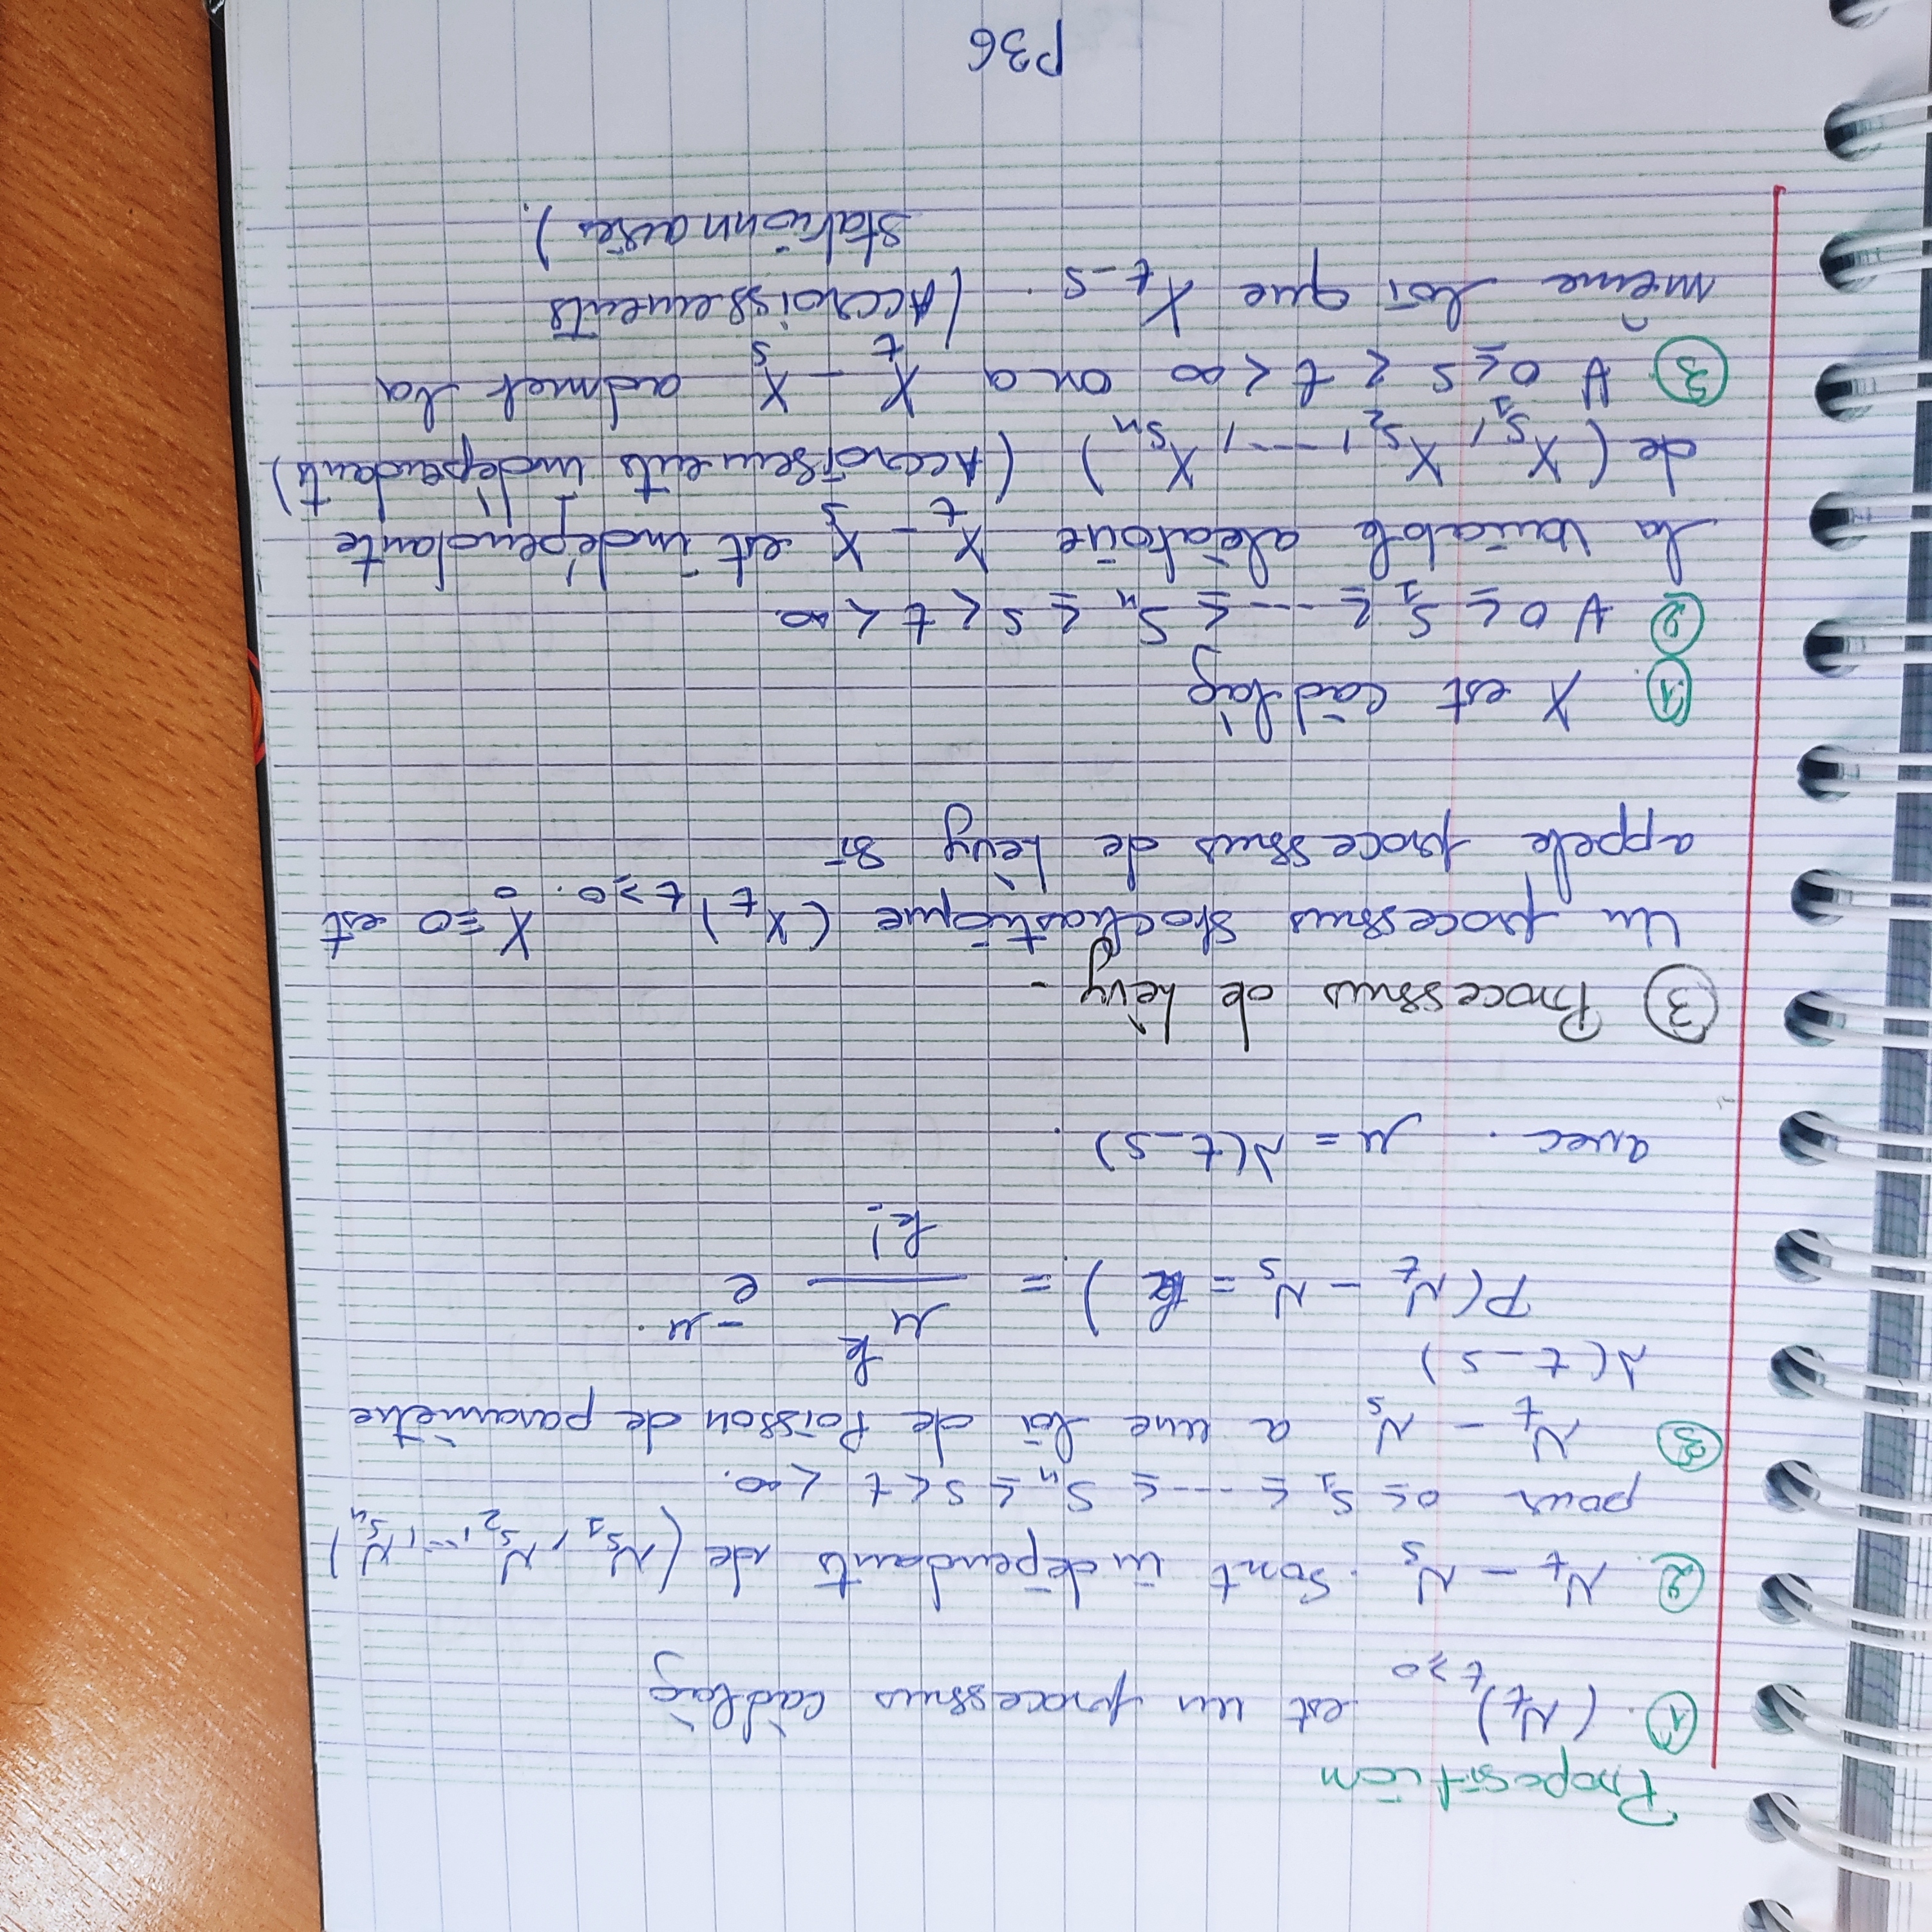 Proposition
① (N_t)_{t≥0} est un processus càdlàg
② N_t - N_s sont indépendants de (N_{s_1}, N_{s_2}, ..., N_{s_n})
pour 0 ≤ s_1 ≤ ---- ≤ s_n ≤ s < t < ∞.
③ N_t - N_s a une loi de Poisson de paramètre
λ(t-s)
P(N_t - N_s = k) = μ^k / k! e^{-μ}.
avec. μ = λ(t-s).
③ Processus de Lèvy -
Un processus stochastique (X_t)_{t≥0}. X_0=0 est
appelé processus de Lèvy si
① X est càdlàg
② ∀ 0 ≤ s_1 ≤ ---- ≤ s_n ≤ s < t < ∞.
la variable alèatoire X_t - X_s est indépendante
de (X_{s_1}, X_{s_2}, ---, X_{s_n}) (Accroisements indépendants)
③ ∀ 0 ≤ s < t < ∞ on a X_t - X_s admet la
même loi que X_{t-s}. (Accroissements
stationnaires).
P36